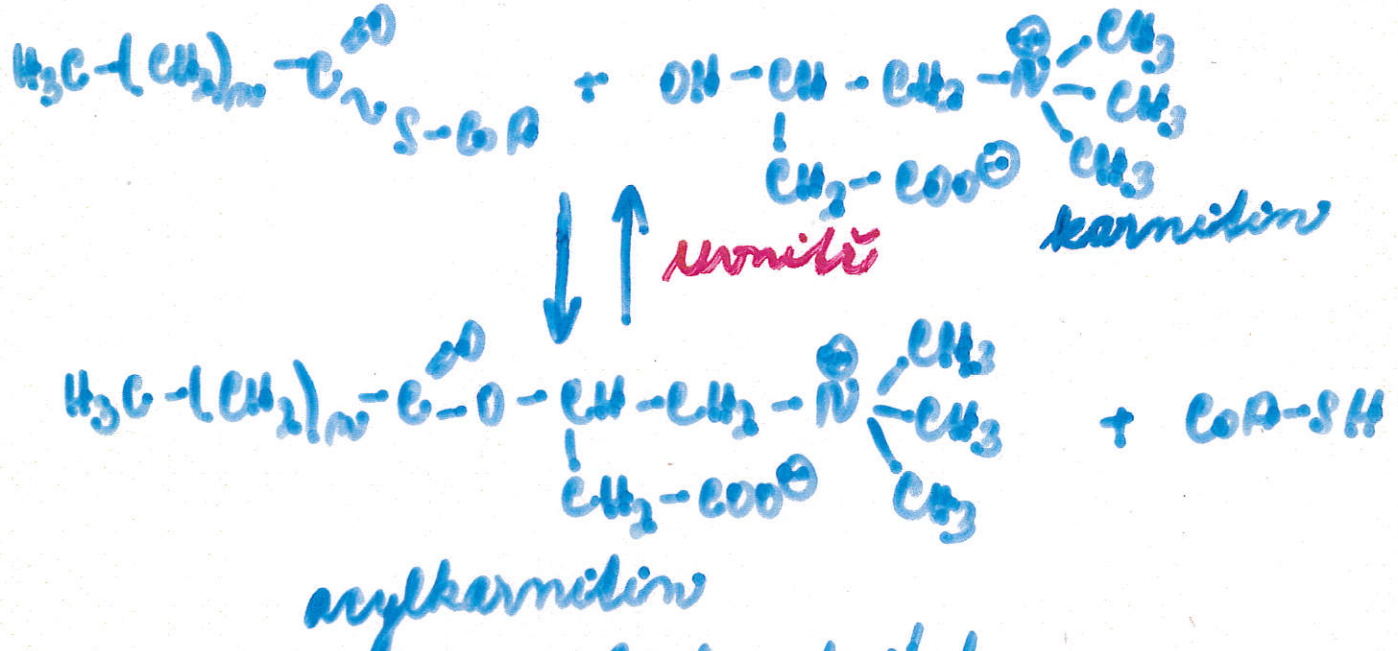 H₃C-(CH₂)ₙ-C=O~S-CoA + OH-CH-CH₂-N⊕-CH₃
CH₃
CH₃
CH₂-COO⊖
karnitin
uvnitř
H₃C-(CH₂)ₙ-C=O-O-CH-CH₂-N⊕-CH₃ + CoA-SH
CH₃
CH₃
CH₂-COO⊖
acylkarnitin